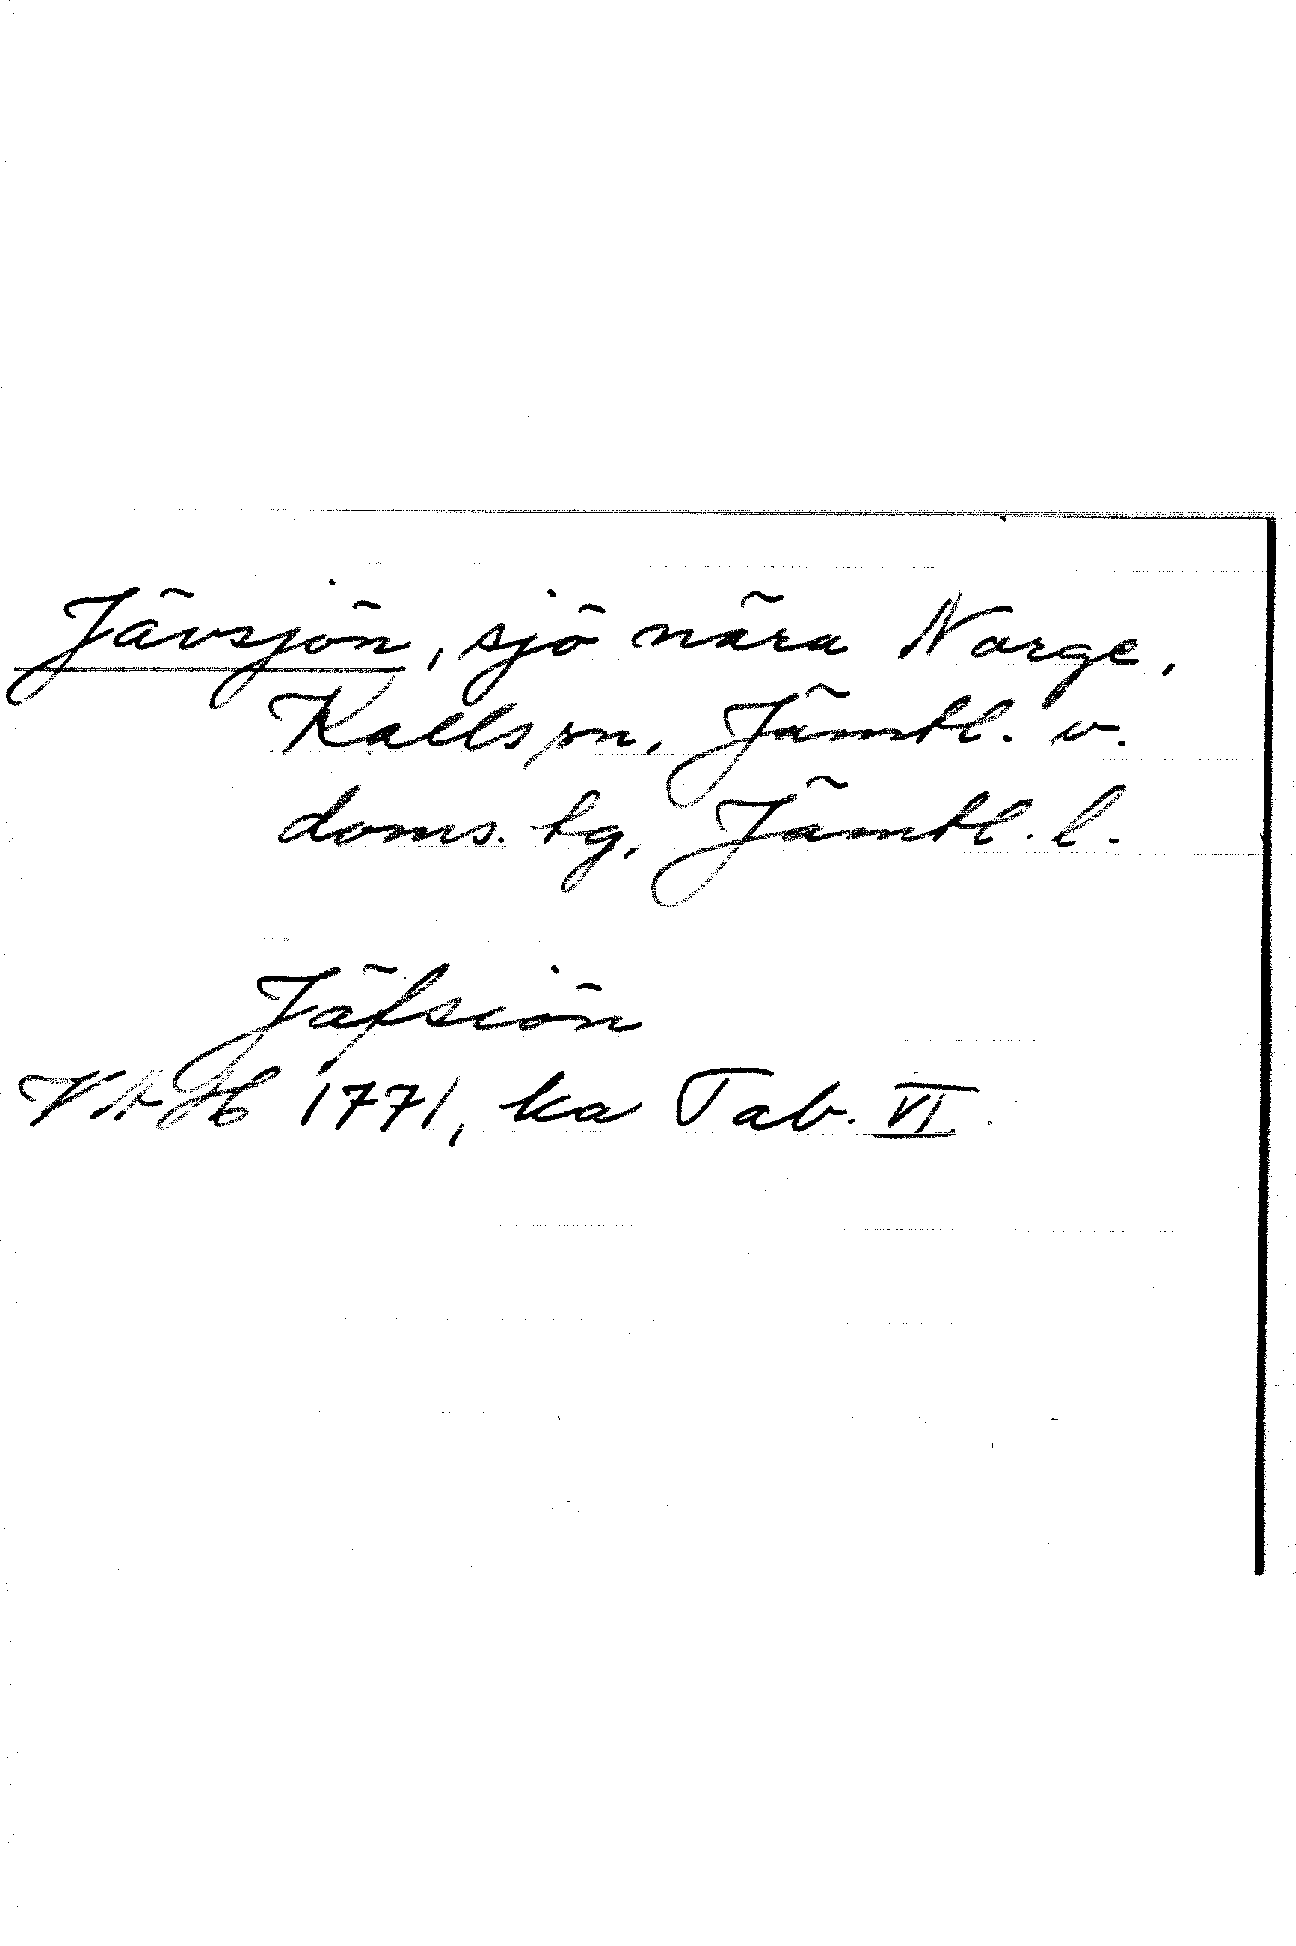 Jävsjön, sjö nära Norge,
Kalls sn, Jämtl. v.
doms. tg, Jämtl. l.
Jäfsiön
VAH 1771, ka Tab. VI.